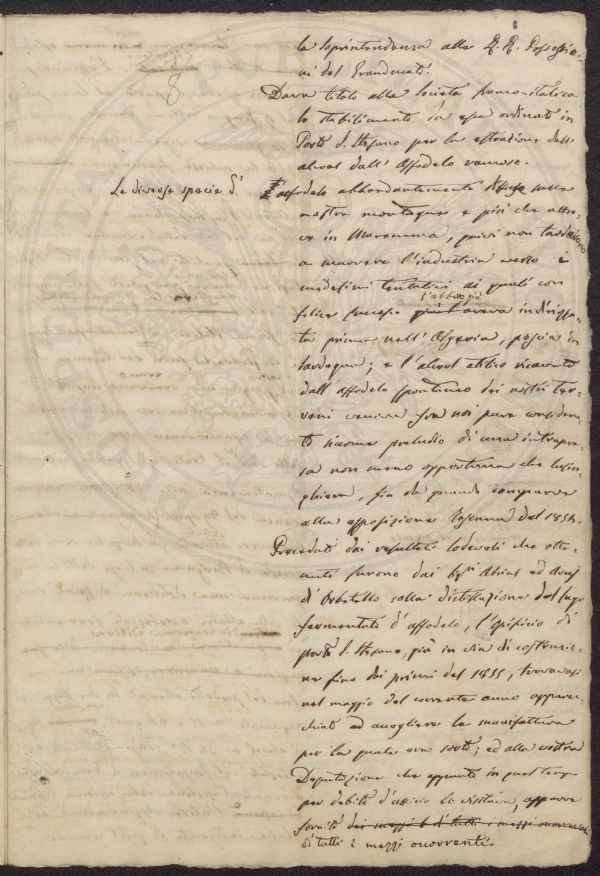 8
la Soprintendenza alle R. R. Possessio-
ni del Granducato.
Dava titolo alla Società franco-italica
lo stabilimento da essa ordinato in
Porto S. Stefano per la estrazione dell'
alcool dall' Affodelo ramoso.
Le diverse specie d'
affodelo abbondantemente diffuse nelle
nostre montagne e più che altro-
ve in Maremma, quivi non tardarono
a muovere l'industria verso i
medesimi tentativi ai quali con
felice successo l'ebbe già
già l'aveva indirizza-
ta prima nell' Algeria, poscia in
Sardegna; e l'alcool etilico ricavato
dall' affodelo spontaneo dei nostri ter-
reni veniva fra noi pure considera-
to siccome preludio di una intrapre-
sa non meno opportuna che lusin-
ghiera, fin da quando comparve
alla esposizione Toscana del 1854.
Preceduti dai resultati lodevoli che otte-
nuti furono dai Sigri Abrial ed
d' Orbetello colla distillazione del sugo
fermentato d' affodelo, l'opificio di
porto S. Stefano, già in via di costruzio-
ne fino dai primi del 1855, trovavasi
nel maggio del corrente anno apparec-
chiato ad accogliere la manifattura
per la quale era sorto; ed alla vostra
Deputazione che appunto in quel tempo
per debito d'ufficio lo visitava, appariva
fornito dei mezzi
di tutti i mezzi occorrenti.